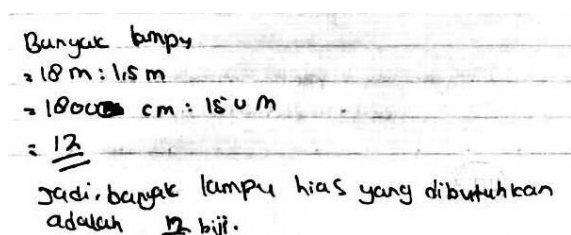 Banyak lampu
= 18 m : 1,5 m
= 1800 cm : 150 m
= 12
Jadi, banyak lampu hias yang dibutuhkan
adalah 12 biji.